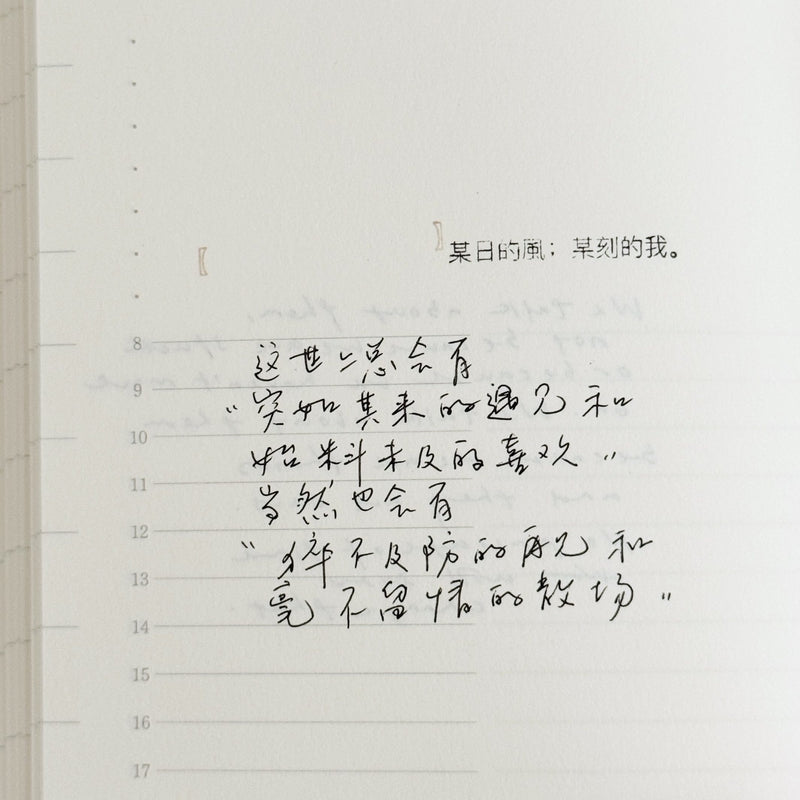 〖 〗某日的風；某刻的我。
8 这世上总会有
9 “突如其来的遇见和
10 始料未及的喜欢”
11 当然也会有
12 “猝不及防的再见和
13 毫不留情的散场”
14
15
16
17